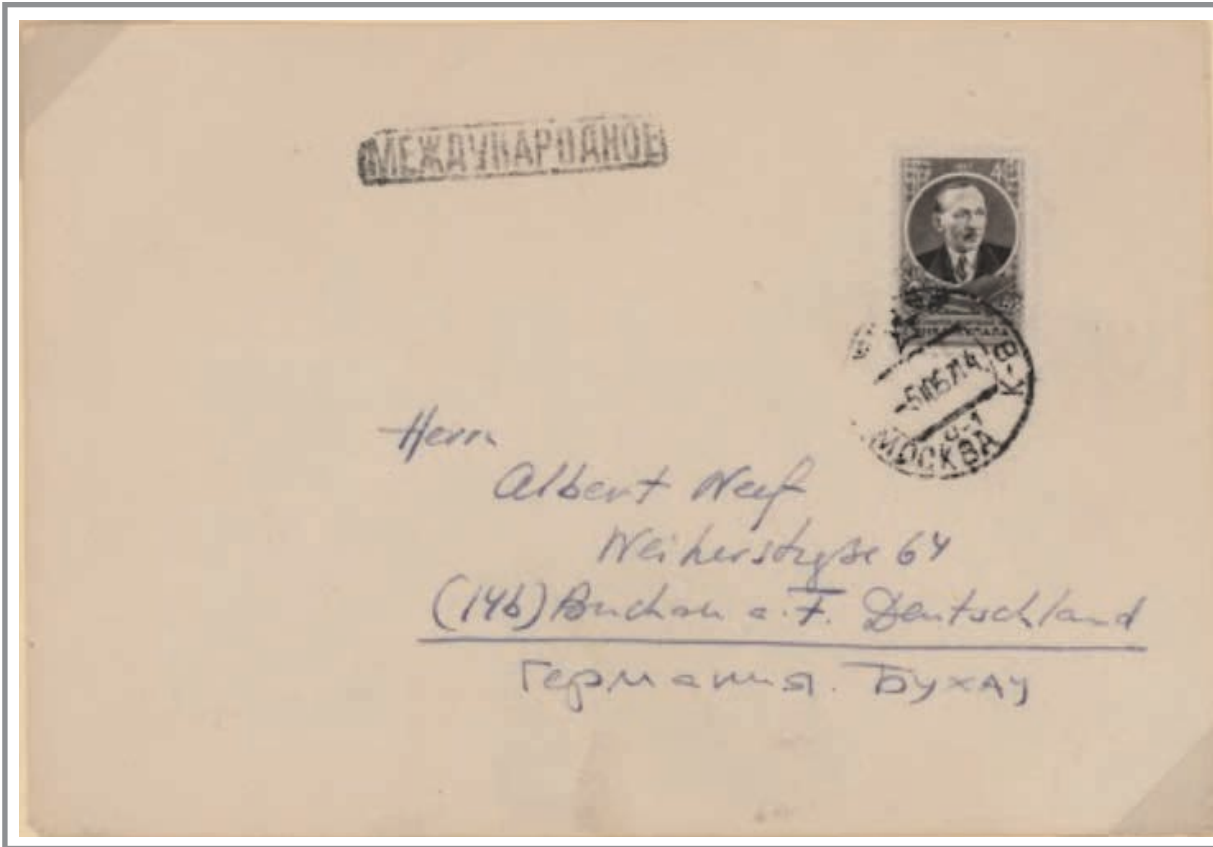 МЕЖДУНАРОДНОЕ
МОСКВА
Herrn
Albert
Weiherstraße 64
(14b) Buchau a. F. Deutschland
Германия. Бухау